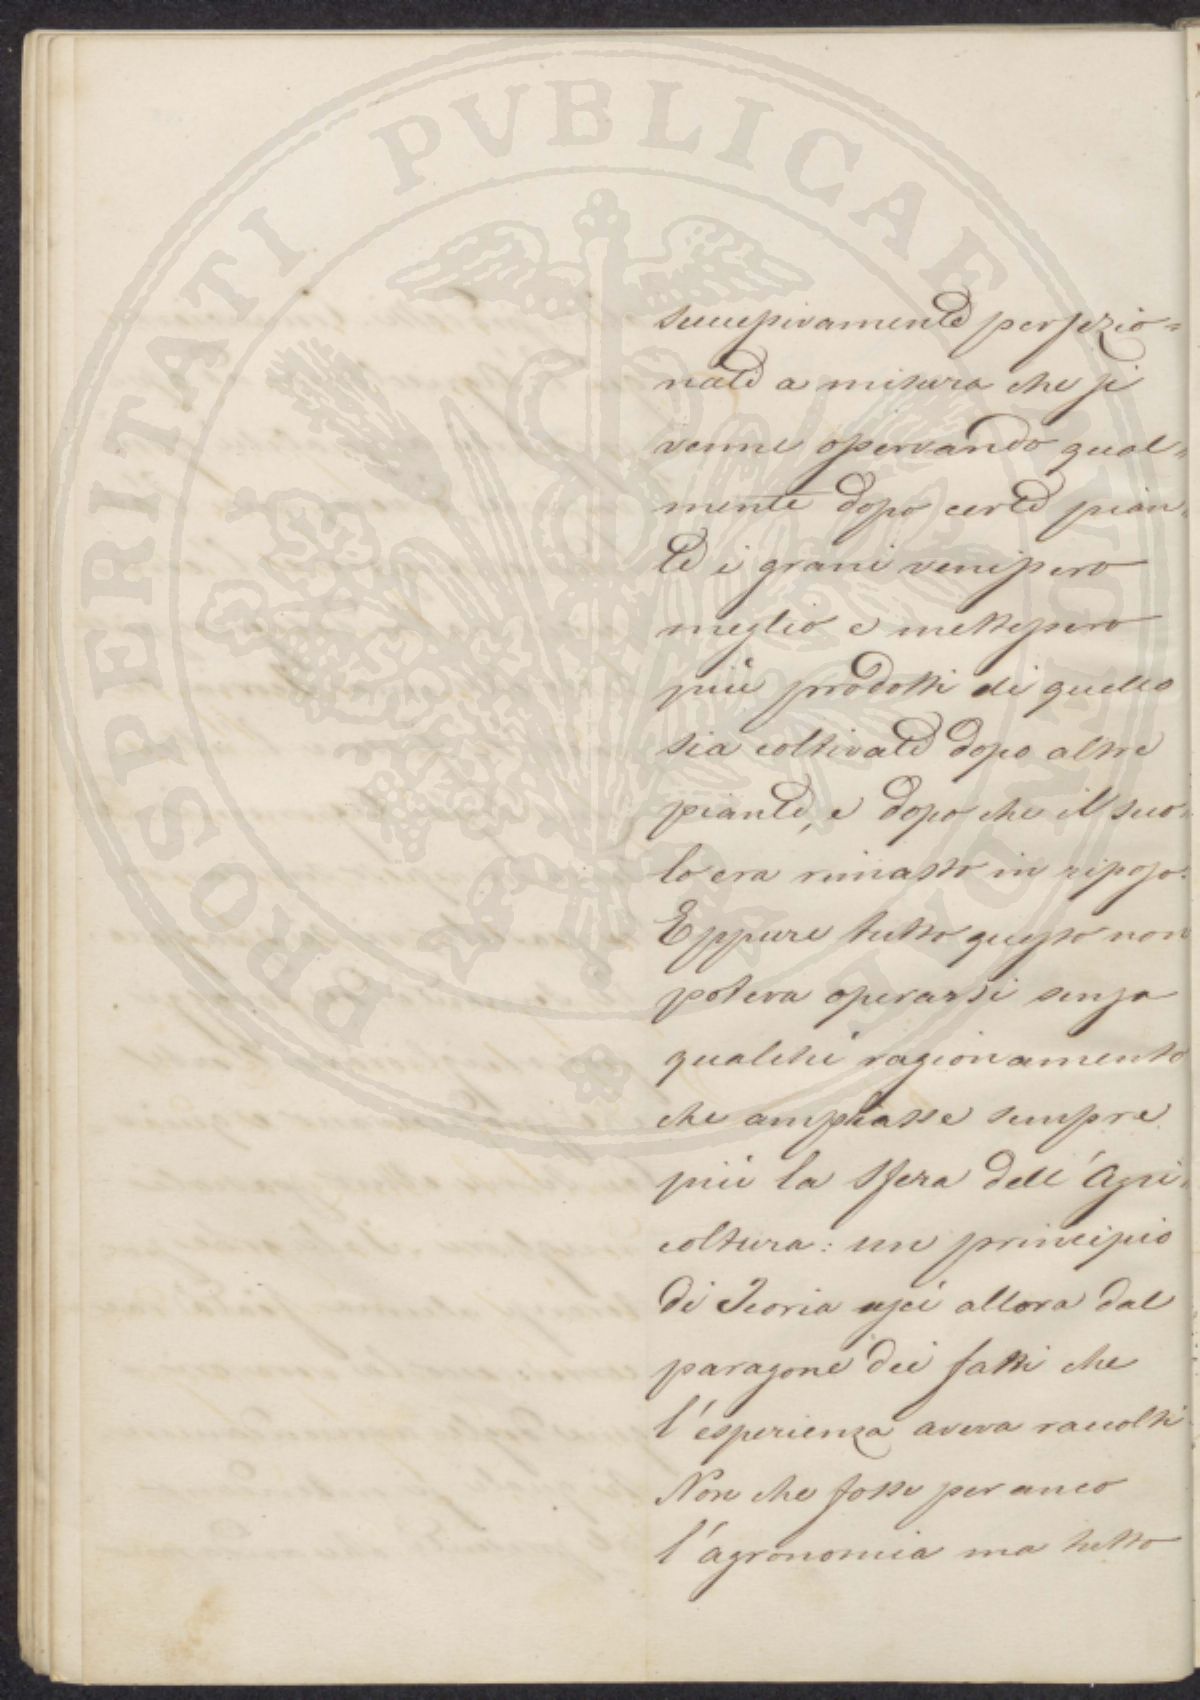 successivamente perfezio=
nate a misura che si
venne osservando qual=
mente dopo certe pian=
te i grani venissero
meglio e mettessero
più prodotti di quello
sia coltivate dopo altre
piante, e dopo che il suo=
lo era rimasto in riposo.
Eppure tutto questo non
poteva operarsi senza
qualche ragionamento
che ampliasse sempre
più la sfera dell'Agri=
coltura: un principio
di Teoria uscì allora dal
paragone dei fatti che
l'esperienza aveva raccolti
Non che fosse per anco
l'agronomia ma tutto
PROSPERITATI PVBLICAE